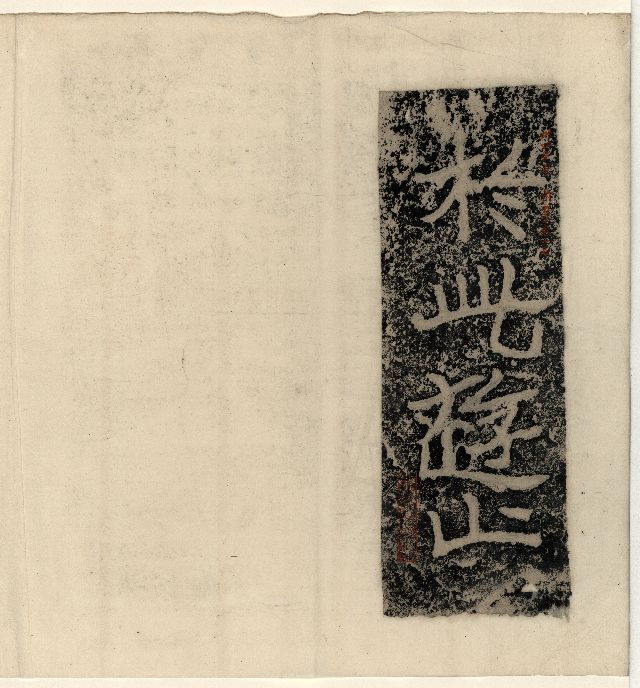 於此遊止